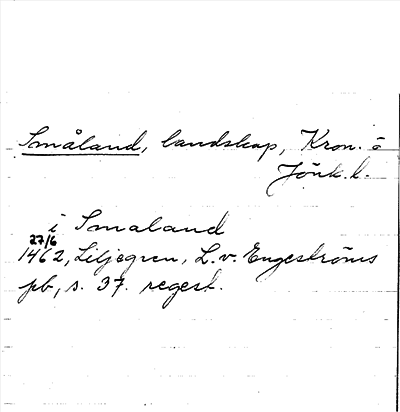 Småland, landskap, Kron. o
Jönk. l.
i Smaland
27/6
1462, Liljegren, L. v. Engeströms
pb, s. 37. regest.